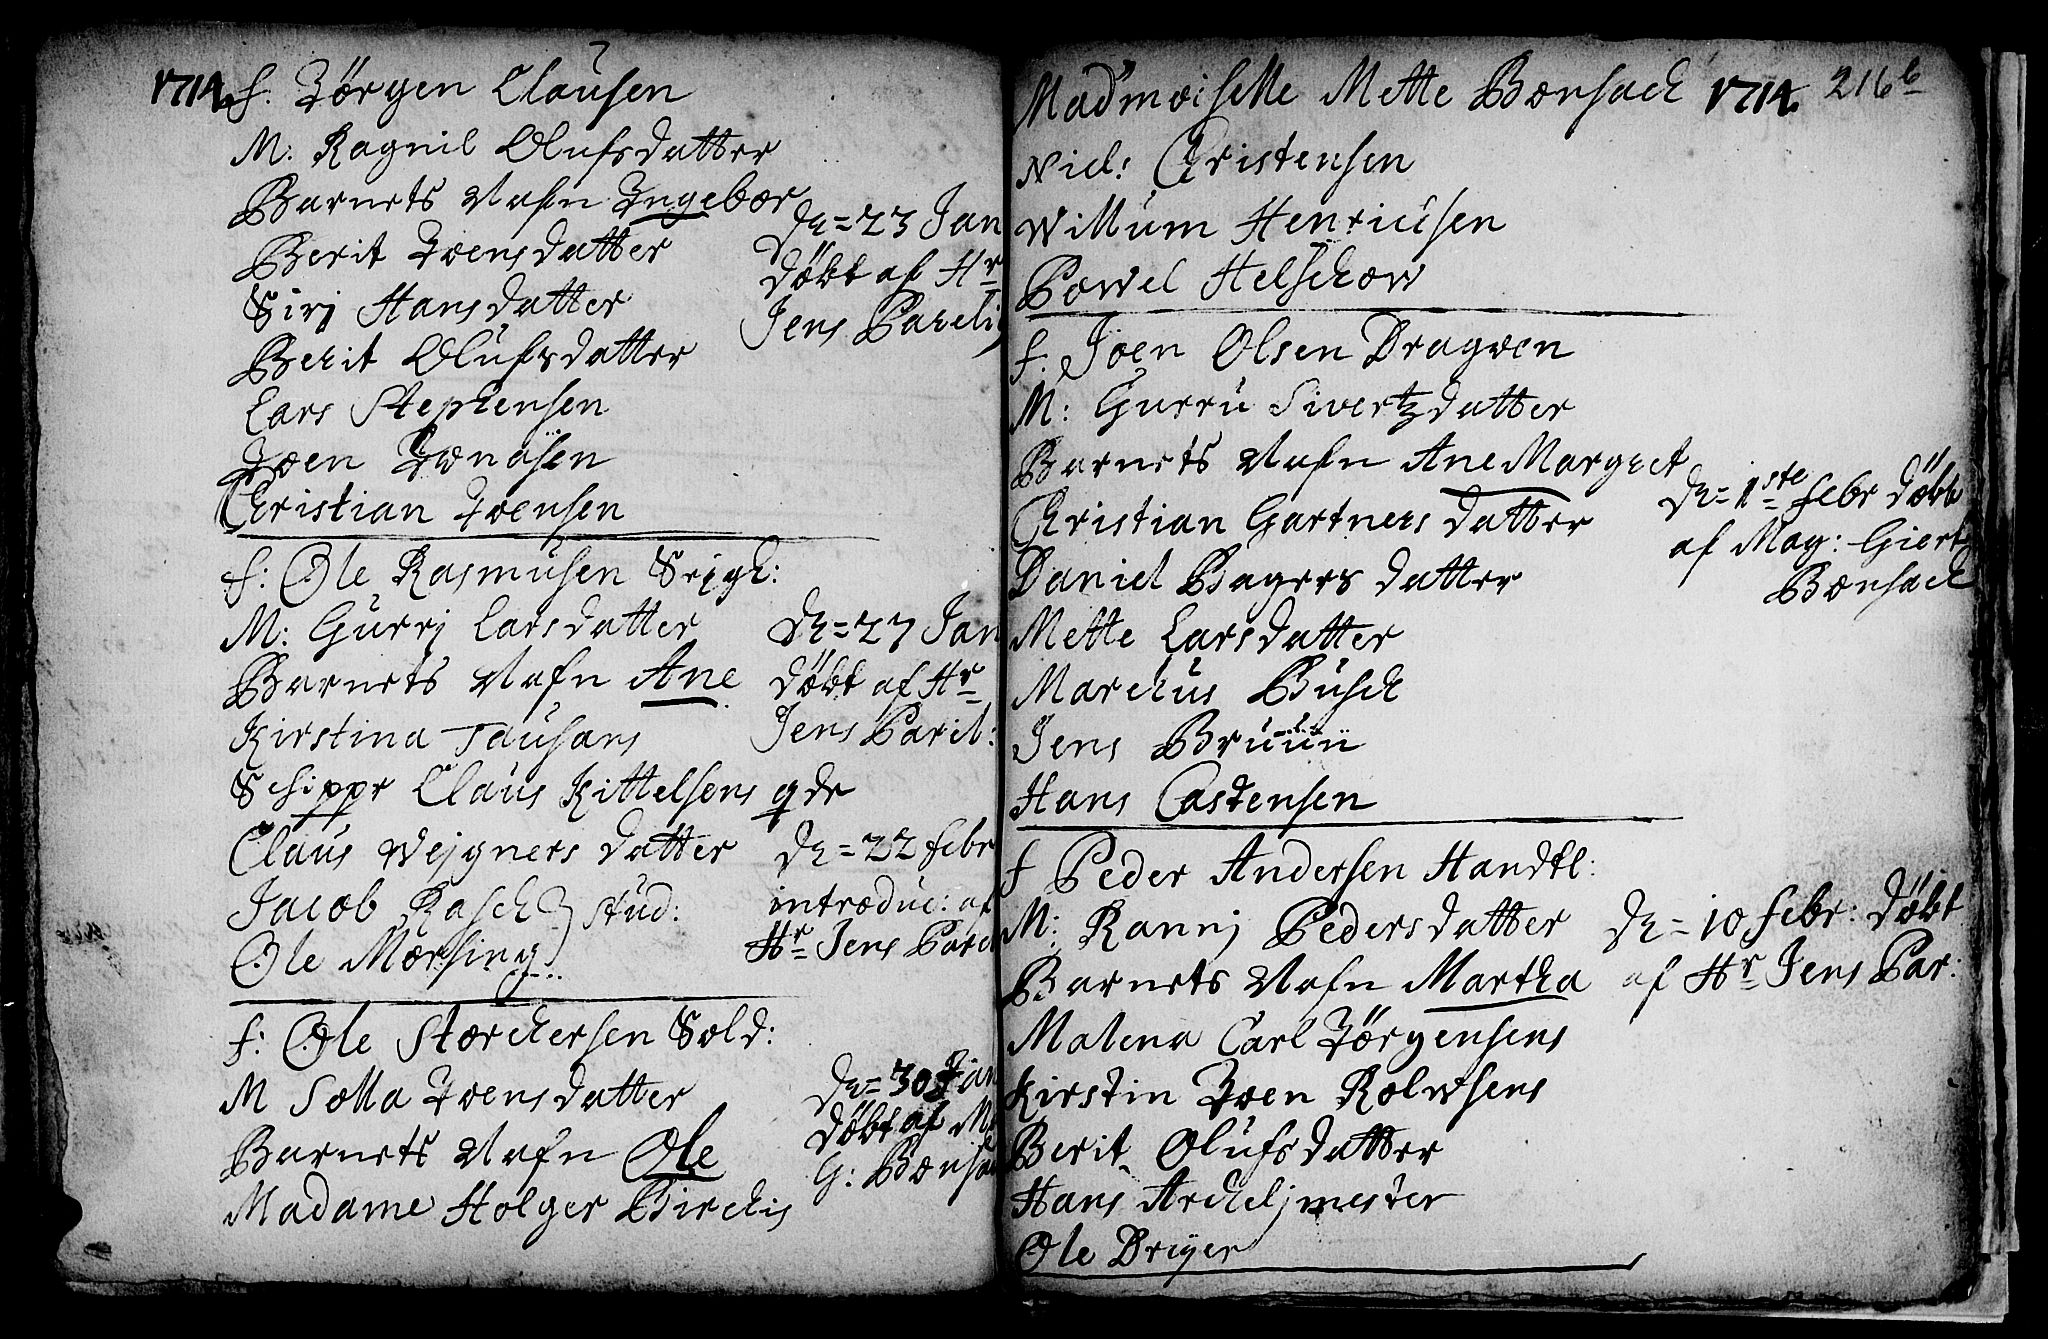 1714. f. Jörgen Clausen
M: Ragnil Olufsdatter
Barnets Nafn Ingebor
Berit Joensdatter
Siri Hansdatter
Berit Olufsdatter
Lars Stephensen
Joen Jonasen
Christian Joensen
dn = 23 Jan
döbt af Hr
Jens Pareli
f: Ole Rasmusen Srigh:
M: Gurrj Larsdatter
Barnets Nafn Ane
Kirstina Tausans
Schippr Claus Kittelsens qde
Claus Wejgners datter
Jacob Rasch } stud:
Ole Morsing
dn = 27 Jan
döbt af Hr
Jens Parel:
dn = 22 febr
introduc: af
Hr Jens Parel
f: Ole Storchersen Sold:
M Solla Joensdatter
Barnets Nafn Ole
Madame Holger Birchis
dn = 30 Jan
döbt af M
G: Bonsa
Madmoiselle Mette Bonsach 1714. 216 b
Niel: Christensen
Willum Henricksen
Powel Helschow
f. Joen Olsen Dragoen
M: Gurru Sivertzdatter
Barnets Nafn Ane Margret
Christian Gartners datter
Daniel Bagers datter
Mette Larsdatter
Marchus Busch
Jens Bruun
Hans Castensen
dn = 1ste febr döbt
af Mag: Giert
Bonsach
f Peder Andersen Handtl:
M: Rannj Pedersdatter
Barnets Nafn Martha
Malena Carl Jörgensens
Kirstin Joen Rolwsens
Berit Olufsdatter
Hans Archeljmester
Ole Dreyer
dn = 10 febr: döbt
af Hr Jens Par: